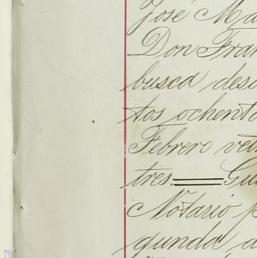 José Ma
Don Fran
busca des
tos ochent
Febrero ve
tres=Gu
Notario p
gunda a